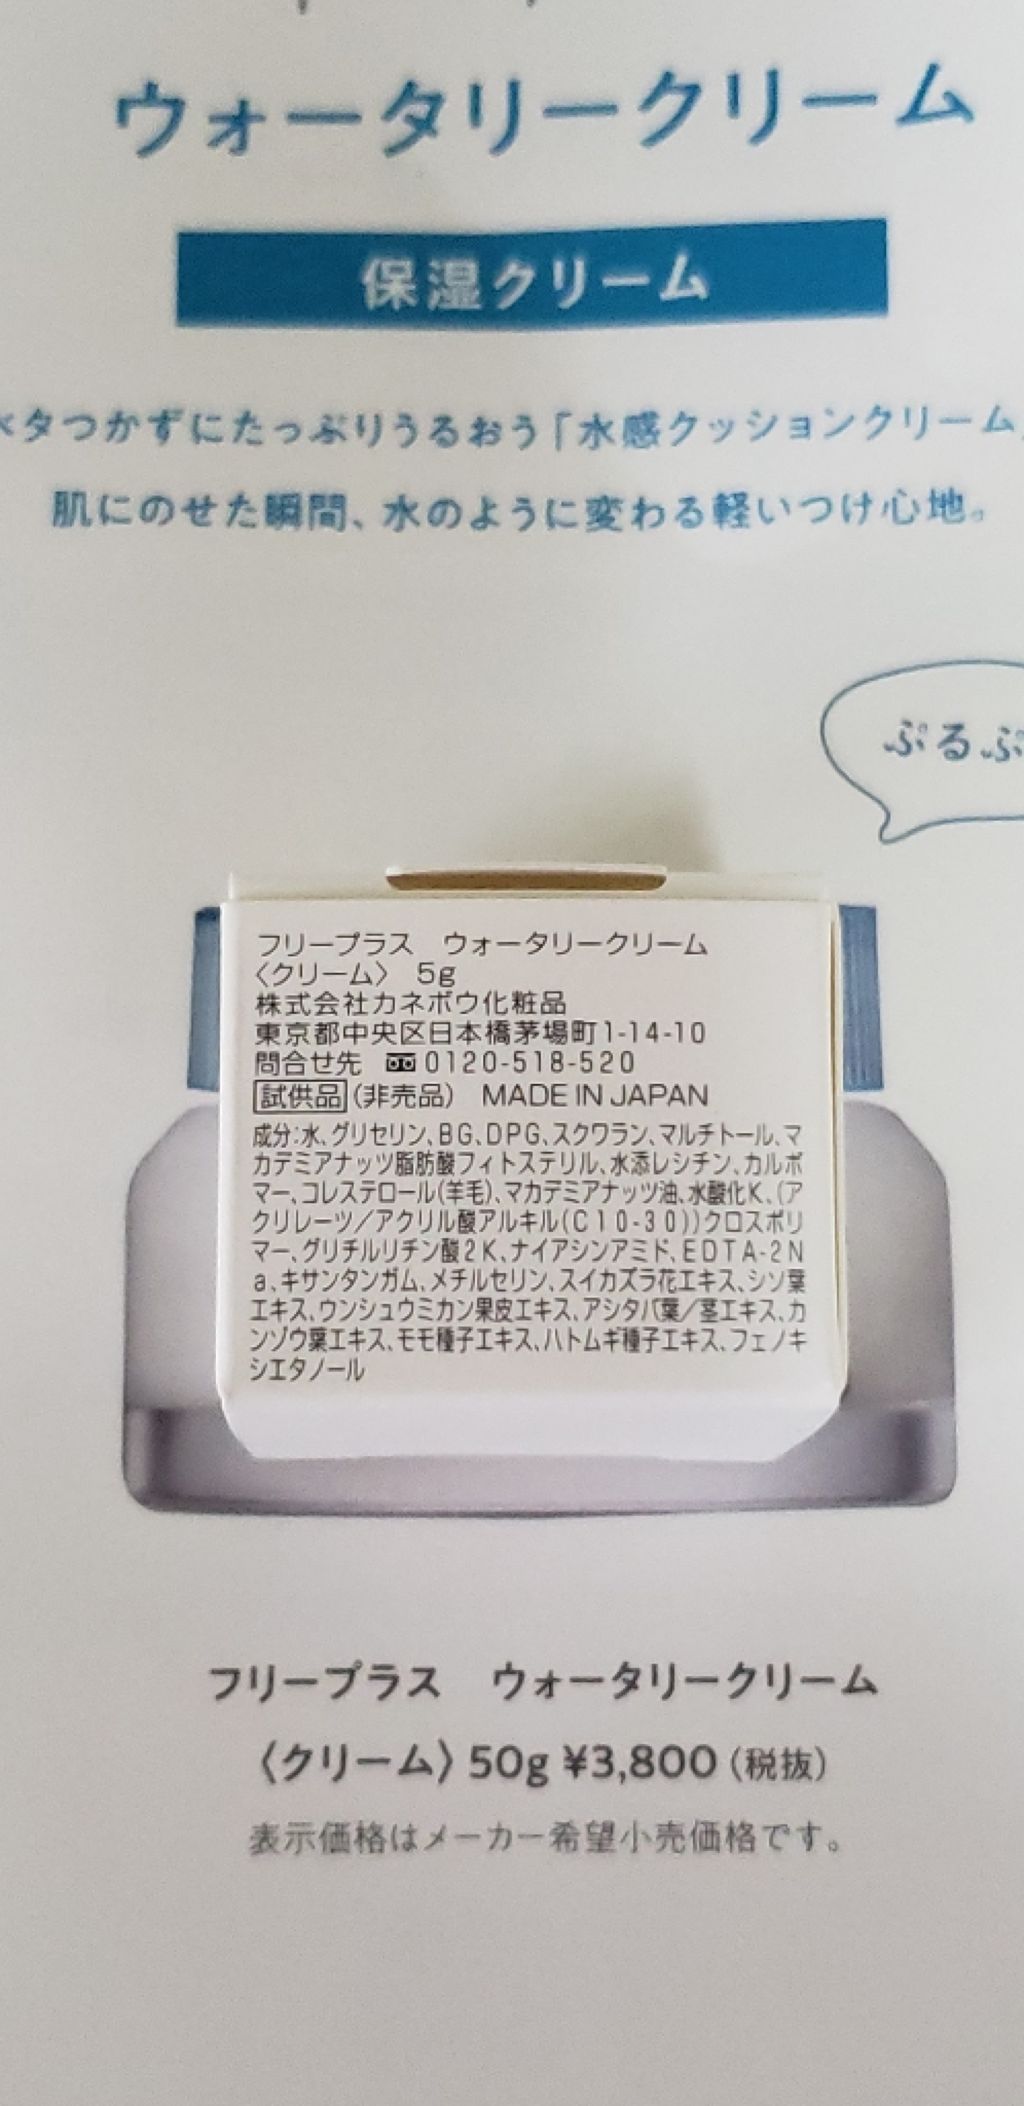 ウォータリークリーム
保湿クリーム
タつかずにたっぷりうるおう「水感クッションクリーム」
肌にのせた瞬間、水のように変わる軽いつけ心地。
ぷるぷ
フリープラス　ウォータリークリーム
〈クリーム〉　5g
株式会社カネボウ化粧品
東京都中央区日本橋茅場町1-14-10
問合せ先　0120-518-520
試供品(非売品)　MADE IN JAPAN
成分:水、グリセリン、BG、DPG、スクワラン、マルチトール、マ
カデミアナッツ脂肪酸フィトステリル、水添レシチン、カルボ
マー、コレステロール(羊毛)、マカデミアナッツ油、水酸化K、(ア
クリレーツ／アクリル酸アルキル(C10-30))クロスポリ
マー、グリチルリチン酸2K、ナイアシンアミド、EDTA-2N
a、キサンタンガム、メチルセリン、スイカズラ花エキス、シソ葉
エキス、ウンシュウミカン果皮エキス、アシタバ葉／茎エキス、カ
ンゾウ葉エキス、モモ種子エキス、ハトムギ種子エキス、フェノキ
シエタノール
フリープラス　ウォータリークリーム
〈クリーム〉50g ¥3,800（税抜）
表示価格はメーカー希望小売価格です。